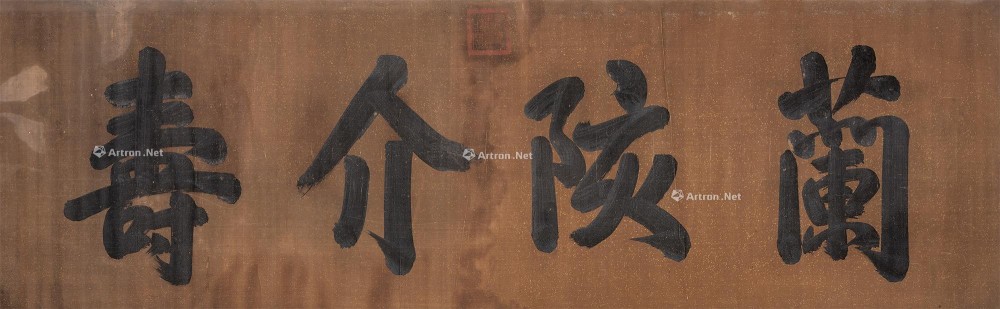 蘭陔介壽
Artron.Net
Artron.Net
Artron.Net